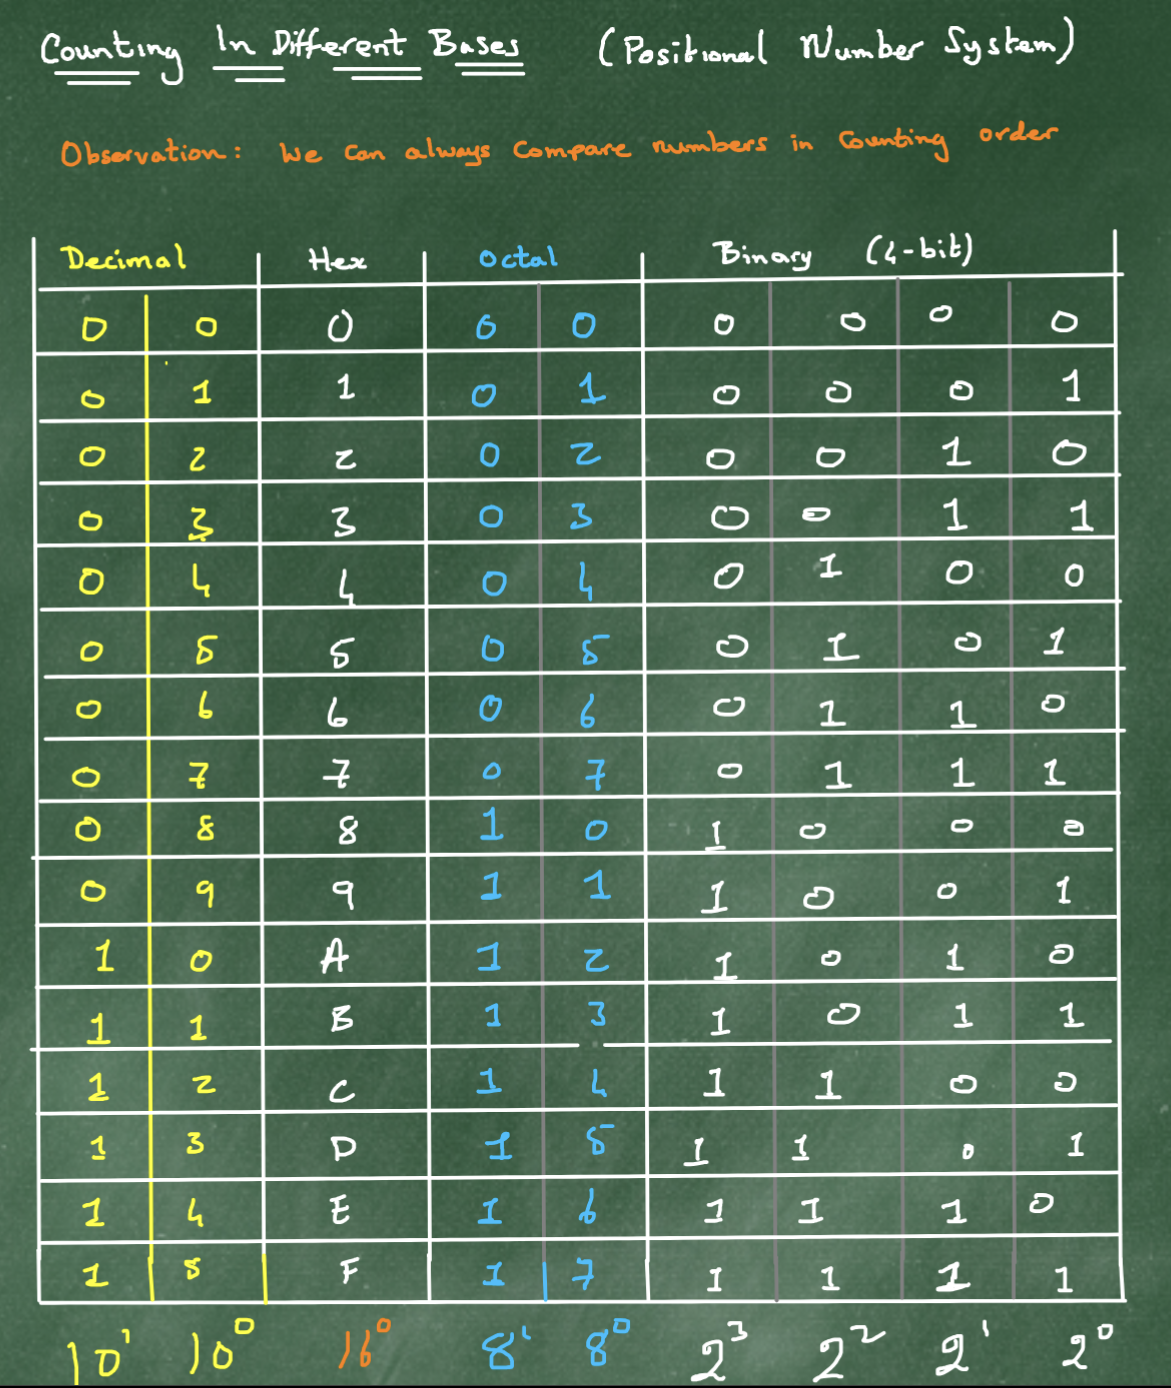 Counting In Different Bases (Positional Number System)
Observation: We can always compare numbers in counting order
Decimal Hex Octal Binary (4-bit)
0 0 0 0 0 0 0 0 0
0 1 1 0 1 0 0 0 1
0 2 2 0 2 0 0 1 0
0 3 3 0 3 0 0 1 1
0 4 4 0 4 0 1 0 0
0 5 5 0 5 0 1 0 1
0 6 6 0 6 0 1 1 0
0 7 7 0 7 0 1 1 1
0 8 8 1 0 1 0 0 0
0 9 9 1 1 1 0 0 1
1 0 A 1 2 1 0 1 0
1 1 B 1 3 1 0 1 1
1 2 C 1 4 1 1 0 0
1 3 D 1 5 1 1 0 1
1 4 E 1 6 1 1 1 0
1 5 F 1 7 1 1 1 1
10¹ 10⁰ 16⁰ 8¹ 8⁰ 2³ 2² 2¹ 2⁰